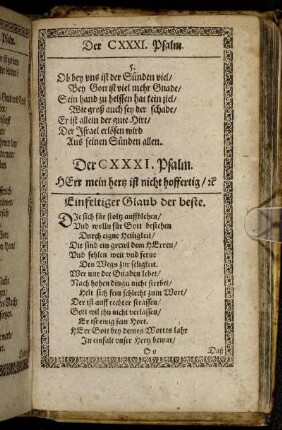 Der CXXXI. Psalm.
5.
Ob bey vns ist der Sünden viel/
Bey Gott ist viel mehr Gnade/
Sein hand zu helffen hat kein ziel/
Wie groß auch sey der schade/
Er ist allein der gute Hirt/
Der Israel erlösen wird
Aus seinen Sünden allen.
Der CXXXI. Psalm.
HErr mein hertz ist nicht hoffertig/ ꝛc
Einfeltiger Glaub der beste.
DIe sich für stoltz auffblehen/
Vnd wolln für Gott bestehen
Durch eigne Heiligkeit/
Die sind ein grewl dem HErren/
Vnd fehlen weit vnd ferne
Den Wegn zur seligkeit.
Wer nur der Gnaden lebet/
Nach hohen dingn nicht strebet/
Helt sich sein schlecht zum Wort/
Der ist auff rechter strassen/
Gott wil ihn nicht verlassen/
Er ist ewig sein Hort.
HErr Gott bey deinem Worten lahr
In einfalt vnser Hertz bewar/
Oo
Daß